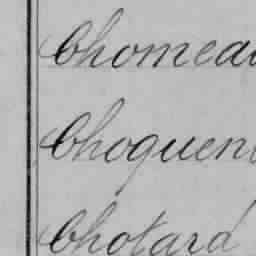 Chomeau
Choquen
Chotard